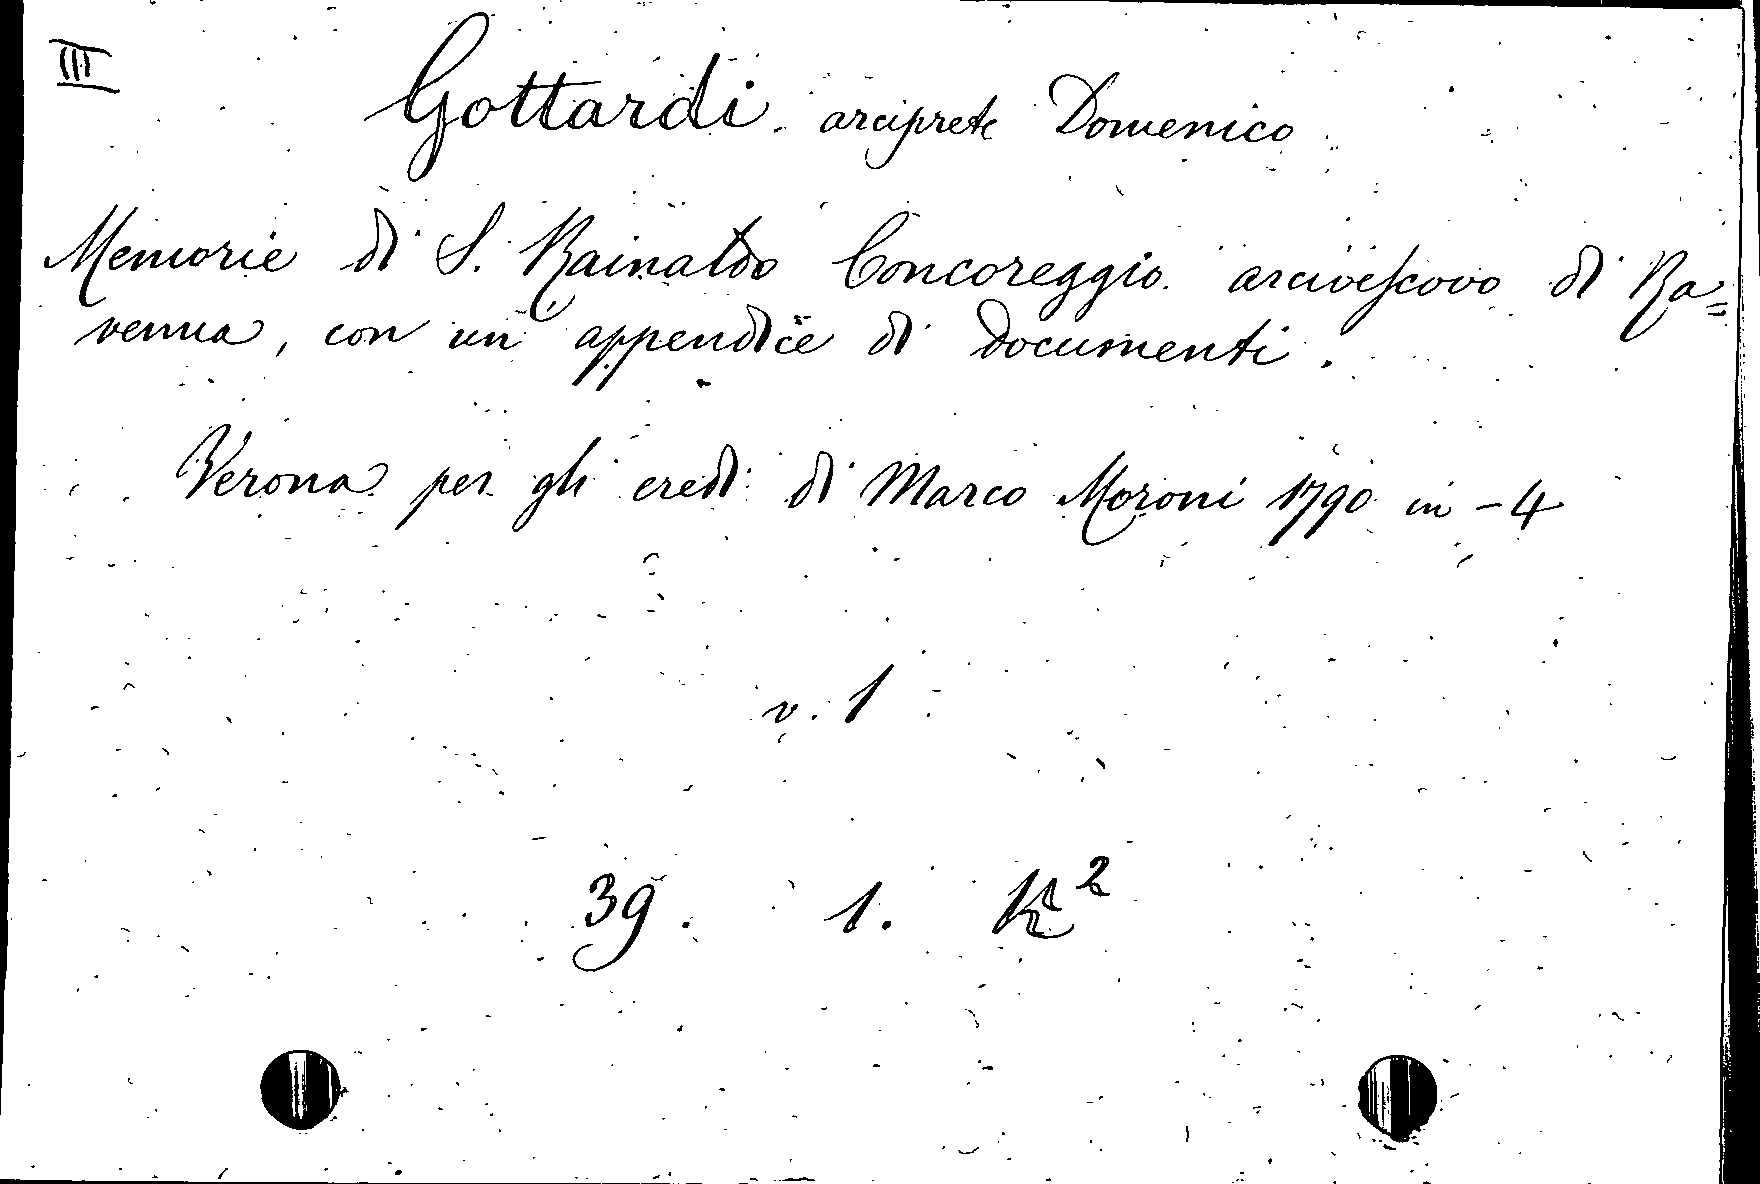 III
Gottardi arciprete Domenico
Memorie di S. Rainaldo Concoreggio arcivescovo di Ra=
venna, con un appendice di documenti.
Verona per gli eredi di Marco Moroni 1790 in-4
v. 1
39. 1. K²